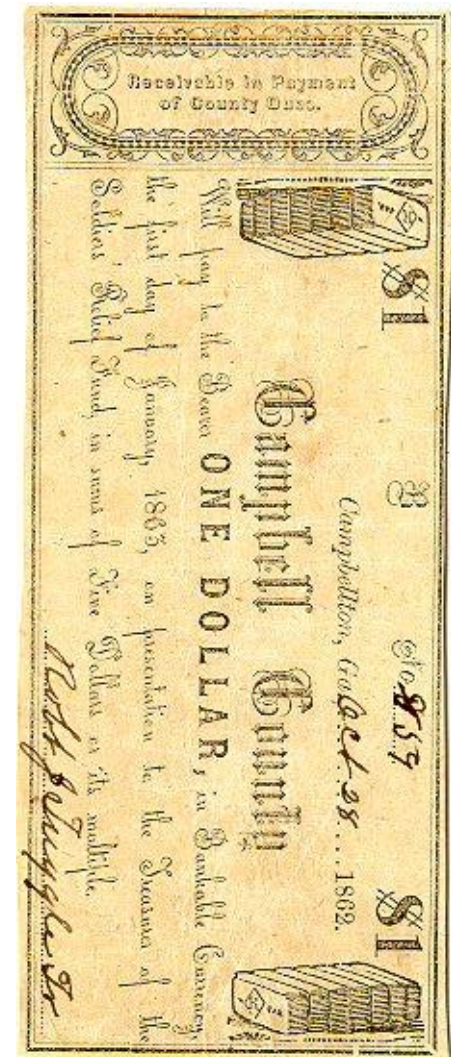 Receivable in Payment
of County Dues.
$1 B No 857 $1
Campbellton, Ga. Oct 28... 1862.
Campbell County
Will pay to the Bearer ONE DOLLAR, in Bankable Currency,
the first day of January, 1865, on presentation to the Treasurer of the
Soldiers' Relief Fund, in sums of Five Dollars or its multiple.
Robt